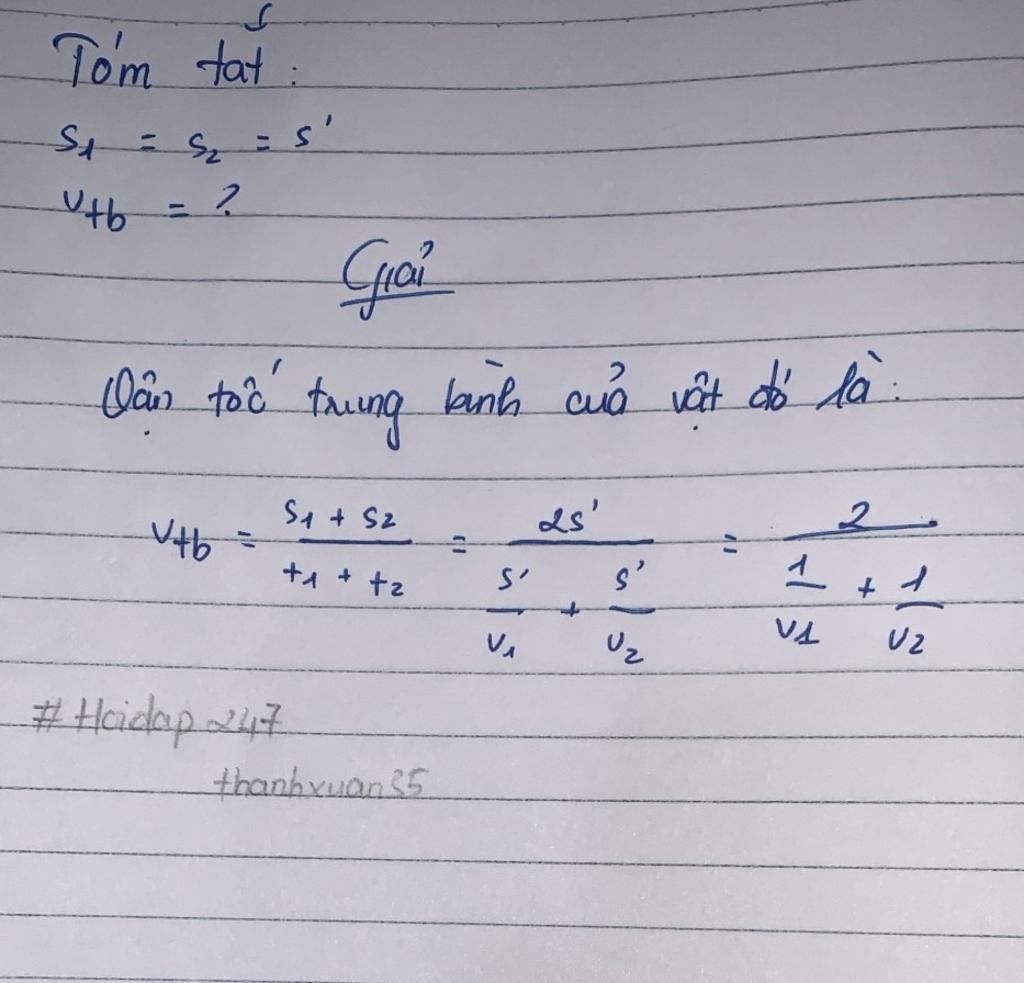 Tóm tắt :
s₁ = s₂ = s'
v_tb = ?
Giải
Vận tốc trung bình của vật đó là :
v_tb = (s₁ + s₂)/(t₁ + t₂) = 2s'/(s'/v₁ + s'/v₂) = 2/(1/v₁ + 1/v₂)
#Hoidap247
thanhxuan35